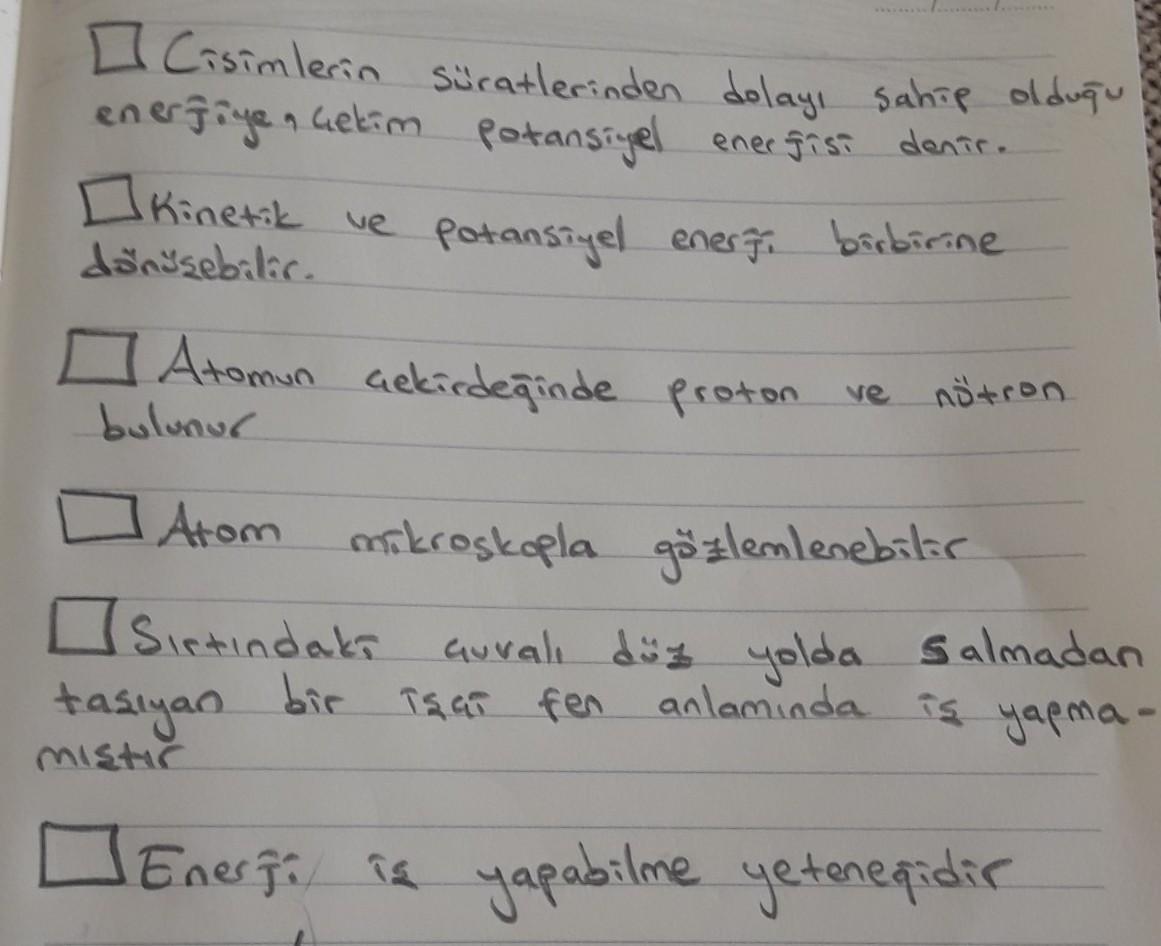 Cisimlerin süratlerinden dolayı sahip olduğu
enerjiye, çekim potansiyel enerjisi denir.
Kinetik ve potansiyel enerji birbirine
dönüşebilir.
Atomun çekirdeğinde proton ve nötron
bulunur
Atom mikroskopla gözlemlenebilir
Sırtındaki çuvalı düz yolda salmadan
taşıyan bir işçi fen anlamında iş yapma-
mıştır
Enerji iş yapabilme yeteneğidir